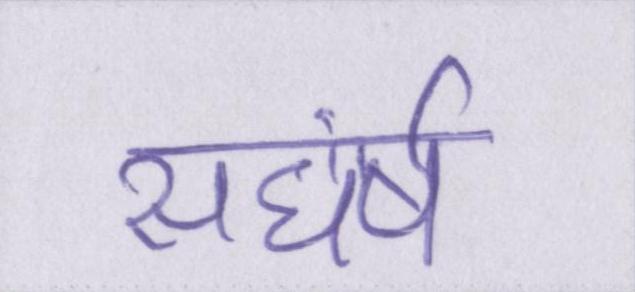 सघंर्ष